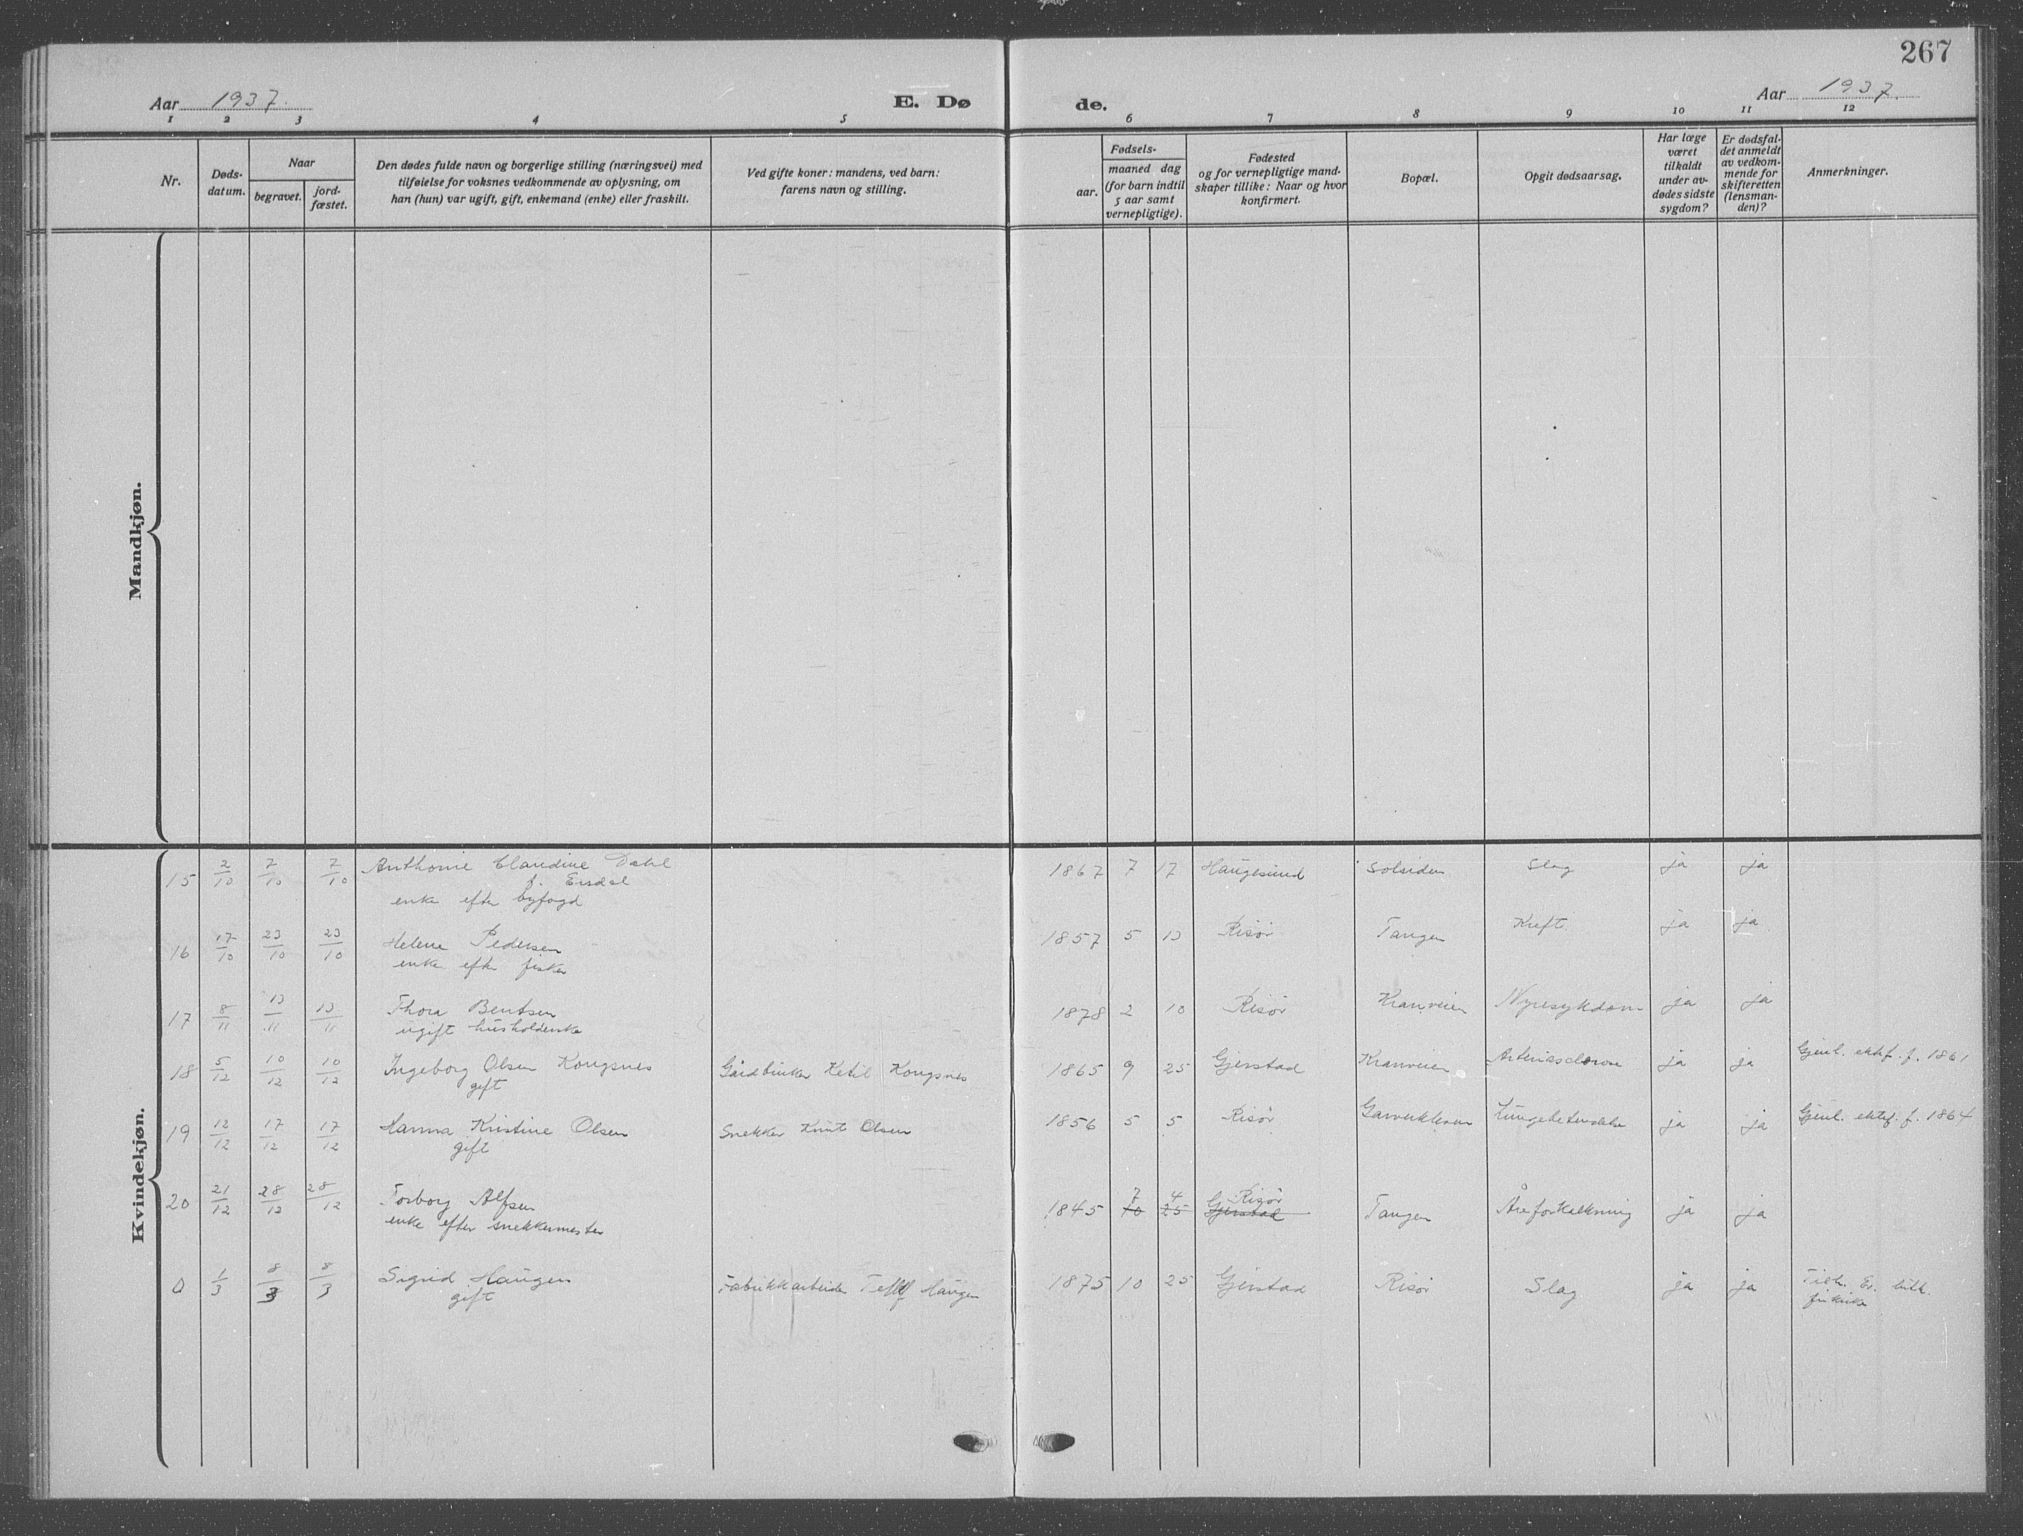 267
Aar 1937.
E. Dø
de.
Aar 1937.
1 2 3 4 5 6 7 8 9 10 11 12
Nr.
Døds-
datum.
Naar
begravet.
jord-
fæstet.
Den dødes fulde navn og borgerlige stilling (næringsvei) med
tilføielse for voksnes vedkommende av oplysning, om
han (hun) var ugift, gift, enkemand (enke) eller fraskilt.
Ved gifte koner: mandens, ved barn:
farens navn og stilling.
Fødsels-
aar.
maaned dag
(for barn indtil
5 aar samt
vernepligtige).
Fødested
og for vernepligtige mand-
skaper tillike: Naar og hvor
konfirmert.
Bopæl.
Opgit dødsaarsag.
Har læge
været
tilkaldt
under av-
dødes sidste
sygdom?
Er dødsfal-
det anmeldt
av vedkom-
mende for
skifteretten
(lensman-
den)?
Anmerkninger.
Mandkjøn.
Kvindekjøn.
15 2/10 7/10 7/10 Anthonie Claudine Dahl 1867 7 17 Haugesund Solsiden Slag ja ja
f. Eisdal
enke efter byfogd
16 17/10 23/10 23/10 Helene Pedersen 1857 5 13 Risør Tangen Kreft. ja ja
enke efter fisker
17 8/11 13/11 13/11 Thora Bentsen 1878 2 10 Risør Kranveien Nyresykdom ja ja
ugift husholderske
18 5/12 10/12 10/12 Ingeborg Olsen Kongsnes Gårdbruker Ketil Kongsnes 1865 9 25 Gjerstad Kranveien Arteriosclerose ja ja Gjenl. ektef. f. 1861
gift
19 12/12 17/12 17/12 Hanna Kristine Olsen Snekker Knut Olsen 1856 5 5 Risør Lungebetendelse ja ja Gjenl. ektef. f. 1864
gift
20 21/12 28/12 28/12 Torborg Alfsen 1845 7 10 4 25 Risør Gjerstad Tangen Åreforkalkning ja ja
enke efter snekkermester
0 1/3 8/3 8/3 Sigrid Haugen Fabrikkarbeider Tellef Haugen 1875 10 25 Gjerstad Risør Slag ja ja Tilh. Ev. luth.
gift
frikirke